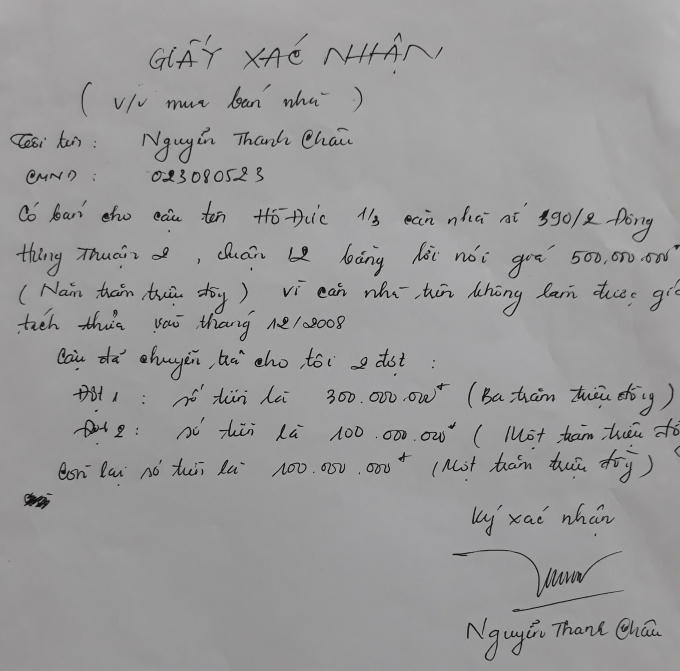 GIẤY XÁC NHẬN
( V/v mua bán nhà )
Tôi tên : Nguyễn Thanh Châu
CMND : 023080523
Có bán cho cậu tên Hồ Đức 1/3 căn nhà số 390/2 Đông
Hưng Thuận 2 , Quận 12 bằng lời nói giá 500,000.000đ
( Năm trăm triệu đồng ) vì căn nhà trên không làm được giấ
tách thửa vào tháng 12/2008
Cậu đã chuyển trả cho tôi 2 đợt :
Đợt 1 : số tiền là 300.000.000đ (Ba trăm triệu đồng)
Đợt 2 : số tiền là 100.000.000đ ( Một trăm triệu đồ
Còn lại số tiền là 100.000.000đ (Một trăm triệu đồng)
Ký xác nhận
Nguyễn Thanh Châu